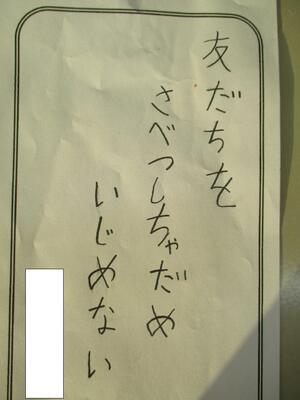 友だちを
さべつしちゃだめ
いじめない